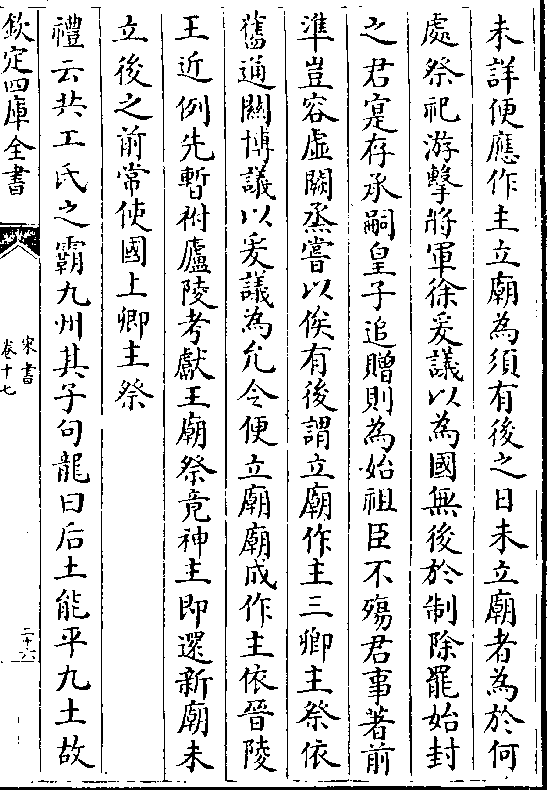 未詳便應作主立廟為須有後之日未立廟者為於何
處祭祀游擊將軍徐爰議以為國無後於制除罷始封
之君寔存承嗣皇子追贈則為始祖臣不殤君事著前
準豈容虛闕烝嘗以俟有後謂立廟作主三卿主祭依
舊通關博議以爰議為允令便立廟廟成作主依晉陵
王近例先暫祔廬陵考獻王廟祭竟神主即還新廟未
立後之前常使國上卿主祭
禮云共工氏之霸九州其子句龍曰后土能平九土故
欽定四庫全書
宋書
卷十七
二十六